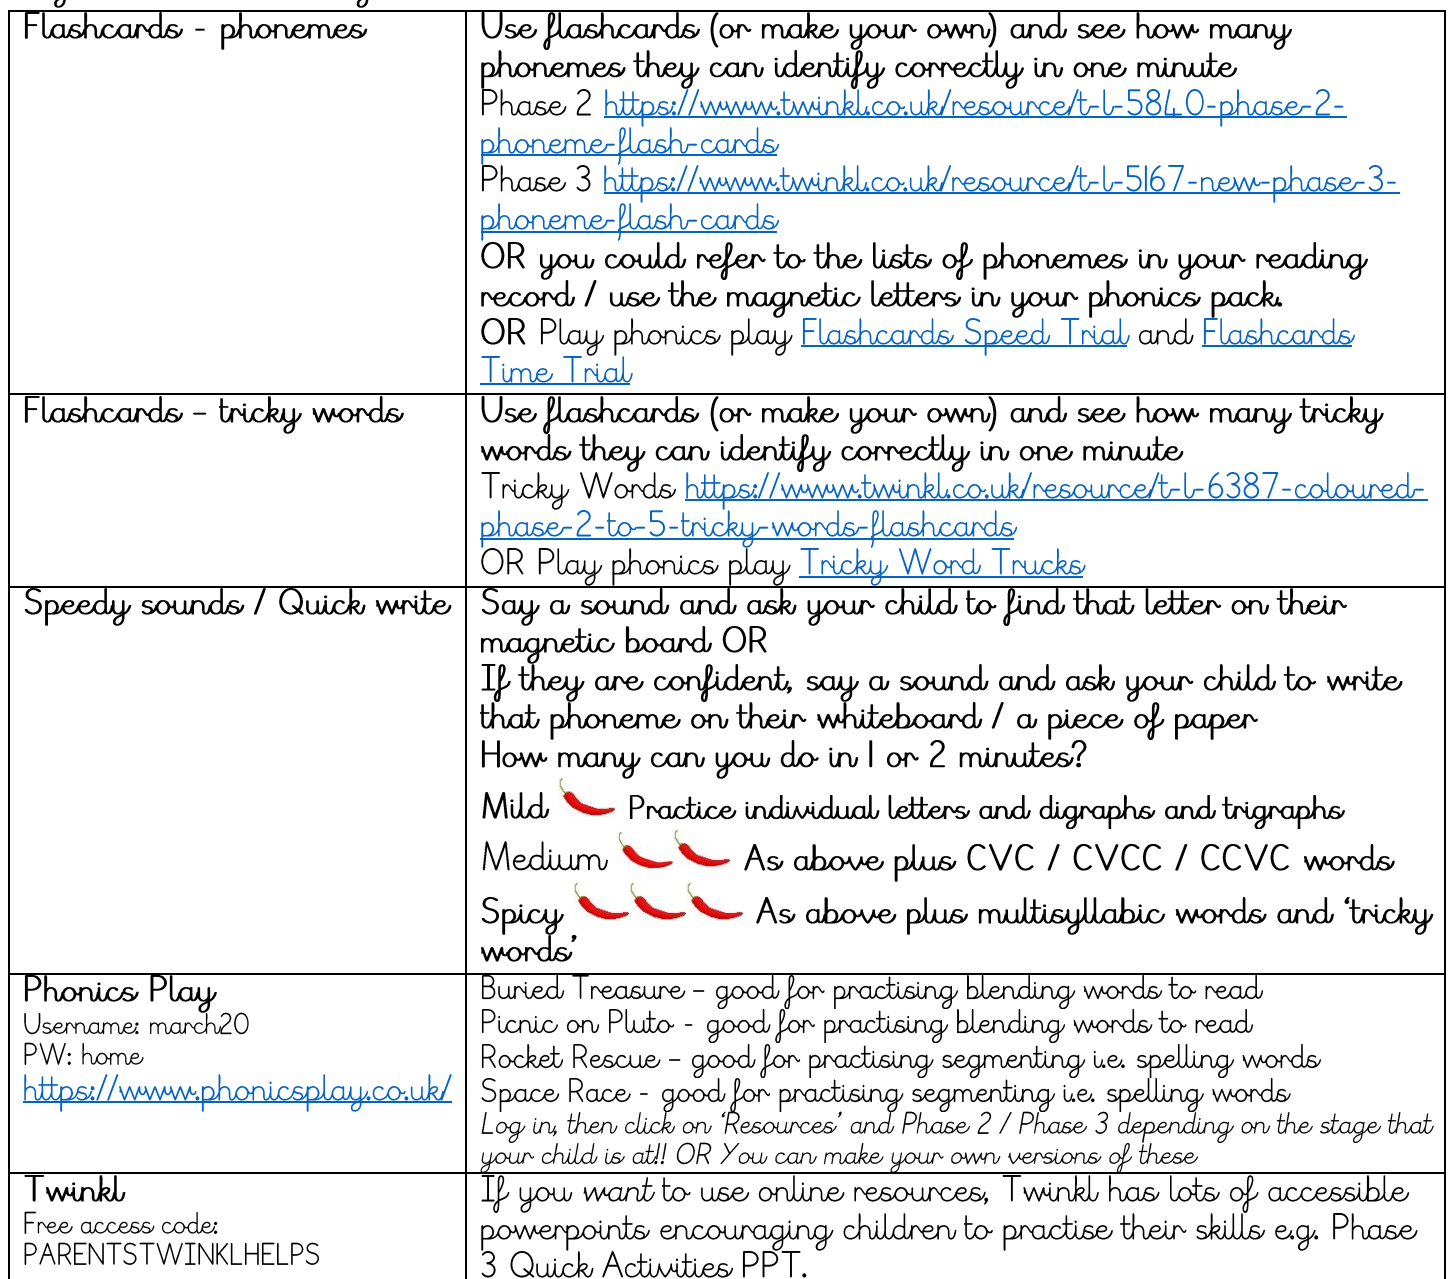 Flashcards - phonemes
Use flashcards (or make your own) and see how many
phonemes they can identify correctly in one minute
Phase 2 https://www.twinkl.co.uk/resource/t-l-5840-phase-2-
phoneme-flash-cards
Phase 3 https://www.twinkl.co.uk/resource/t-l-5167-new-phase-3-
phoneme-flash-cards
OR you could refer to the lists of phonemes in your reading
record / use the magnetic letters in your phonics pack.
OR Play phonics play Flashcards Speed Trial and Flashcards
Time Trial
Flashcards – tricky words
Use flashcards (or make your own) and see how many tricky
words they can identify correctly in one minute
Tricky Words https://www.twinkl.co.uk/resource/t-l-6387-coloured-
phase-2-to-5-tricky-words-flashcards
OR Play phonics play Tricky Word Trucks
Speedy sounds / Quick write
Say a sound and ask your child to find that letter on their
magnetic board OR
If they are confident, say a sound and ask your child to write
that phoneme on their whiteboard / a piece of paper
How many can you do in 1 or 2 minutes?
Mild Practice individual letters and digraphs and trigraphs
Medium As above plus CVC / CVCC / CCVC words
Spicy As above plus multisyllabic words and ‘tricky
words’
Phonics Play
Username: march20
PW: home
https://www.phonicsplay.co.uk/
Buried Treasure – good for practising blending words to read
Picnic on Pluto - good for practising blending words to read
Rocket Rescue – good for practising segmenting i.e. spelling words
Space Race - good for practising segmenting i.e. spelling words
Log in, then click on ‘Resources’ and Phase 2 / Phase 3 depending on the stage that
your child is at!! OR You can make your own versions of these
Twinkl
Free access code:
PARENTSTWINKLHELPS
If you want to use online resources, Twinkl has lots of accessible
powerpoints encouraging children to practise their skills e.g. Phase
3 Quick Activities PPT.